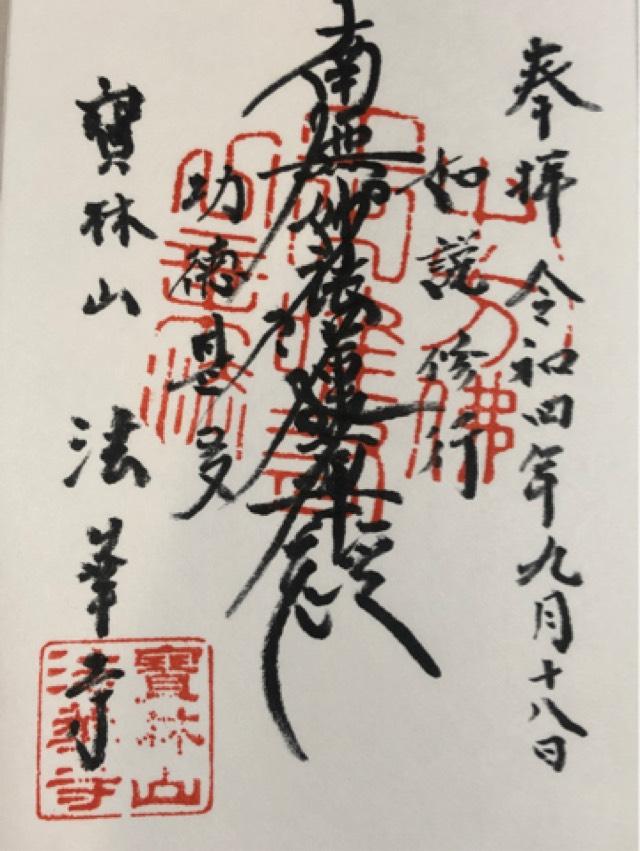 奉拝 令和四年九月十八日
如説修行
南無妙法蓮華經
功徳甚多
寶林山 法華寺
寶林山
法華寺